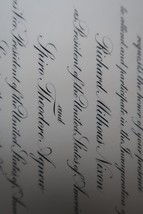 requests the honor of your presence
to attend and participate in the Inauguration of
Richard Milhous Nixon
as President of the United States of America
and
Spiro Theodore Agnew
as Vice President of the United States of America